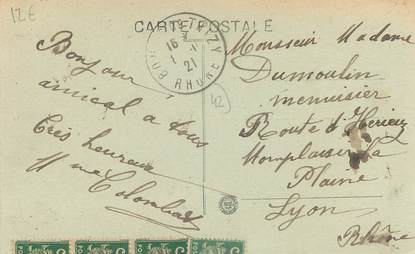 12€
CARTE POSTALE
THIZY
16
1
21
RHONE
42
Bonjour
amical a tous
très heureux
Monsieur Madame
Dumoulin
menuisier
Route d'Heyrieux
Monplaisir la
Plaine
Lyon
Rhône